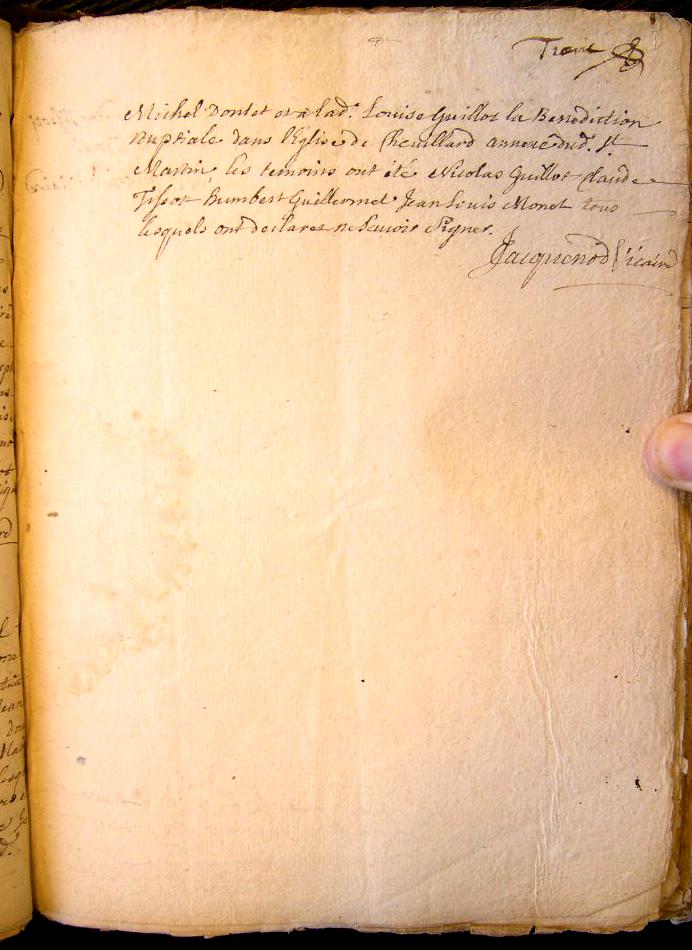 Troix
Michel Dontet et a lad.e Louise Guillot la Benediction
nuptiale dans l'Eglise de Cheuillard annexe dud. St.
Martin, les temoins ont été Nicolas Guillot Claude
Tissot Humbert Guillermet Jean Louis Monet tous
lesquels ont declarez ne scavoir signer.
Jacquenod vicaire